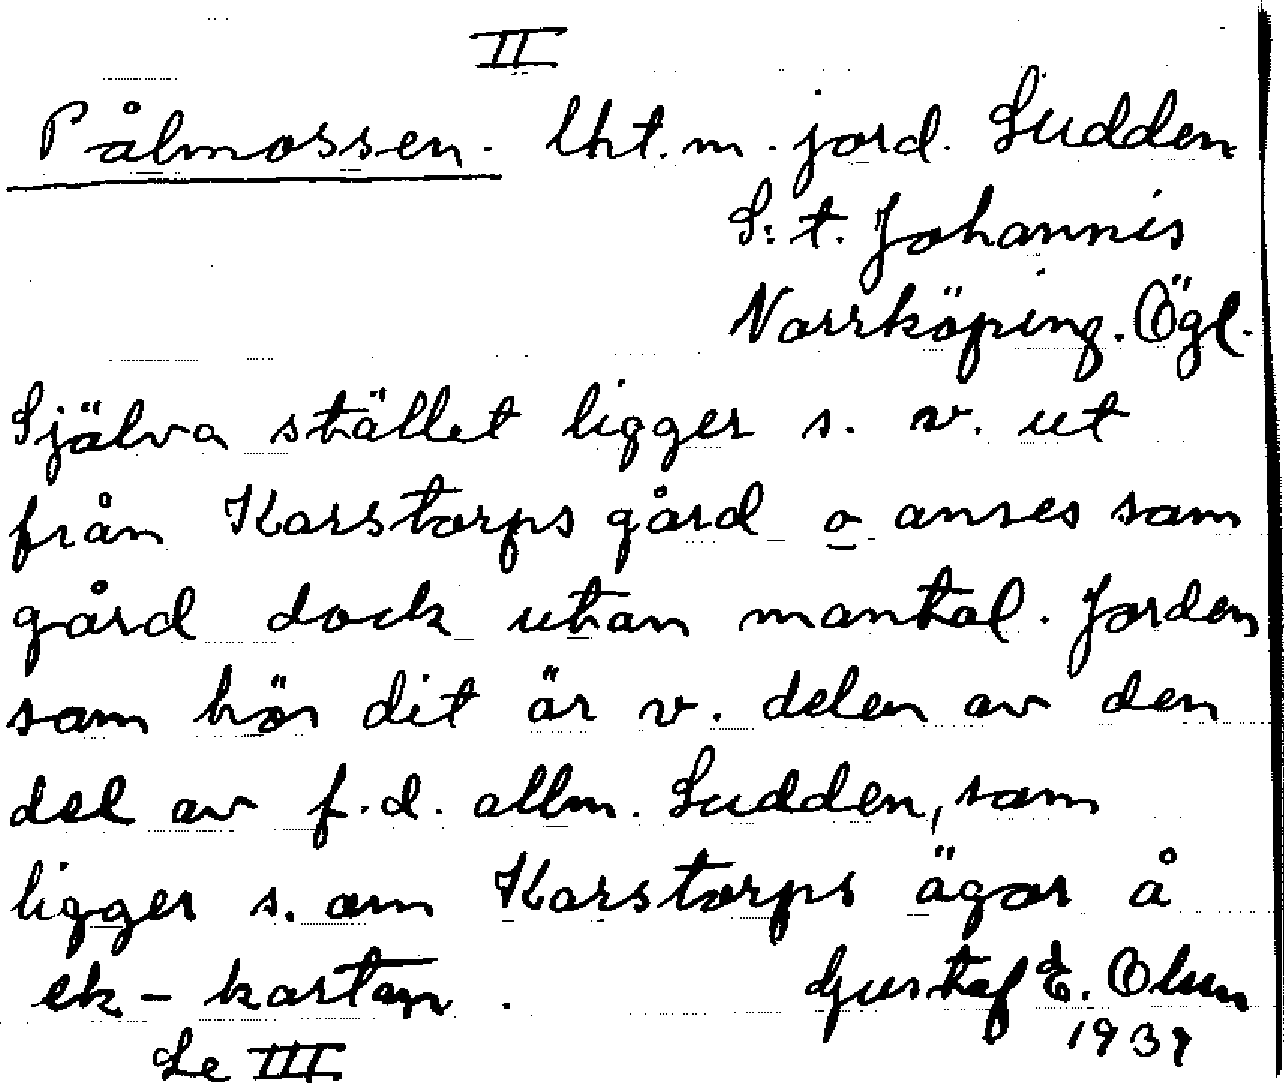 II
Pålmossen. Lht. m. jord. Sudden
S:t. Johannis
Norrköping. Ögl.
Själva stället ligger s. v. ut
från Karstorps gård o anses som
gård dock utan mantal. Jorden
som hör dit är v. delen av den
del av f.d. allm. Sudden, som
ligger s. om Karstorps ägor å
ek-kartan.
Gustaf E. Olson
1937
Se III